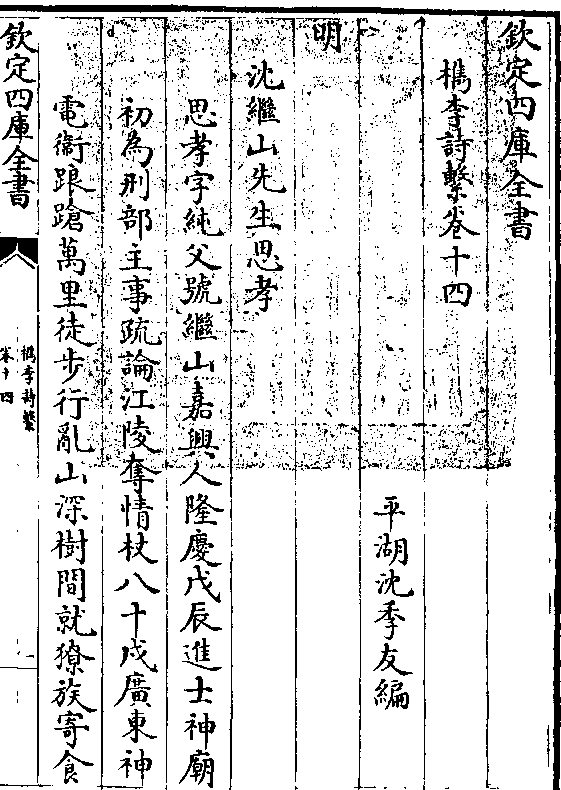 欽定四庫全書
檇李詩繫卷十四
平湖沈季友編
明
沈繼山先生思孝
思孝字純父號繼山嘉興人隆慶戊辰進士神廟
初為刑部主事疏論江陵奪情杖八十戍廣東神
電衛踉蹌萬里徒步行亂山深樹間就獠族寄食
欽定四庫全書
檇李詩繫
卷十四
一